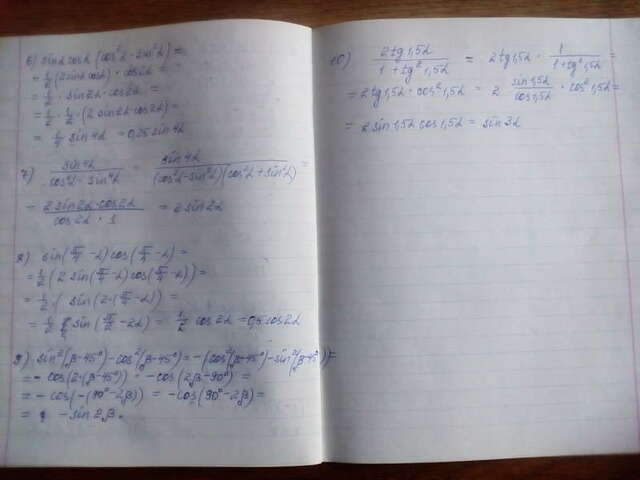 6) sinα cosα (cos²α - sin²α) =
= 1/2 (2sinα cosα) · cos2α =
= 1/2 · sin2α · cos2α =
= 1/2 · 1/2 · (2 sin2α cos2α) =
= 1/4 sin4α = 0,25 sin4α
7) sin4α / (cos⁴α - sin⁴α) = sin4α / ((cos²α - sin²α)(cos²α + sin²α)) =
= (2 sin2α · cos2α) / (cos2α · 1) = 2 sin2α
8) sin(π/4 - α) cos(π/4 - α) =
= 1/2 (2 sin(π/4 - α) cos(π/4 - α)) =
= 1/2 · (sin(2·(π/4 - α)) =
= 1/2 sin(π/2 - 2α) = 1/2 cos2α = 0,5 cos2α
9) sin²(β - 45°) - cos²(β - 45°) = -(cos²(β - 45°) - sin²(β - 45°)) =
= - cos(2·(β - 45°)) = - cos(2β - 90°) =
= - cos(-(90° - 2β)) = - cos(90° - 2β) =
= - sin 2β.
10) 2tg1,5α / (1 + tg²1,5α) = 2tg1,5α · 1 / (1 + tg²1,5α) =
= 2tg1,5α · cos²1,5α = 2 sin1,5α / cos1,5α · cos²1,5α =
= 2 sin1,5α cos1,5α = sin3α